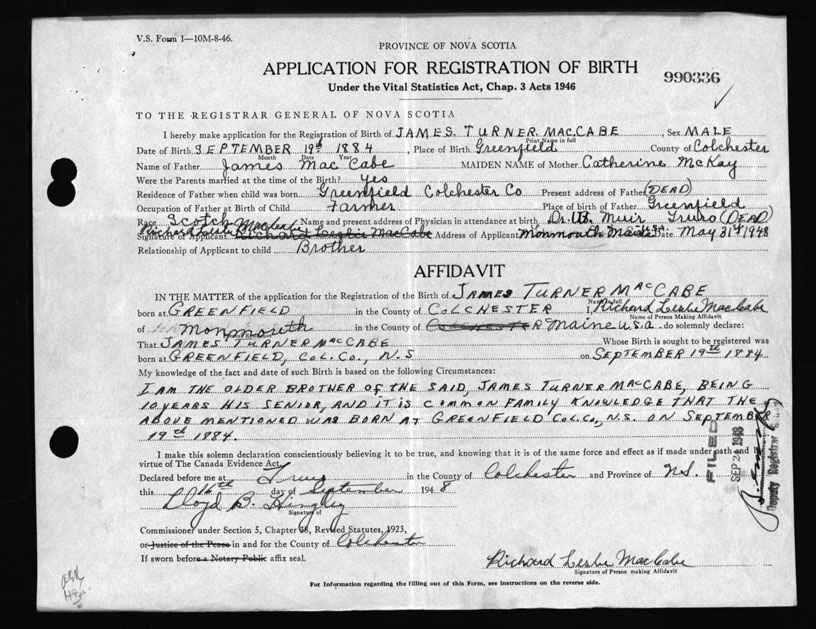 V.S. Form 1—10M-8-46.
PROVINCE OF NOVA SCOTIA
APPLICATION FOR REGISTRATION OF BIRTH
990336
Under the Vital Statistics Act, Chap. 3 Acts 1946
TO THE REGISTRAR GENERAL OF NOVA SCOTIA
I hereby make application for the Registration of Birth of JAMES TURNER MACCABE, Sex MALE
Print Name in full
Date of Birth SEPTEMBER 19th 1884, Place of Birth Greenfield County of Colchester
Month Date Year
Name of Father James MacCabe MAIDEN NAME of Mother Catherine McKay
Were the Parents married at the time of the Birth? Yes
Residence of Father when child was born Greenfield Colchester Co Present address of Father (DEAD)
Occupation of Father at Birth of Child Farmer Place of birth of Father Greenfield
Race Scotch Name and present address of Physician in attendance at birth Dr. Muir Truro (DEAD)
Richard Leslie MacCabe
Signature of Applicant Richard Leslie MacCabe Address of Applicant Monmouth Maine Date May 31st 1948
Relationship of Applicant to child Brother
AFFIDAVIT
IN THE MATTER of the application for the Registration of the Birth of JAMES TURNER MACCABE
Name in full
born at GREENFIELD in the County of COLCHESTER I, Richard Leslie MacCabe
Name of Person Making Affidavit
of Monmouth in the County of COLCHESTER Maine U.S.A. do solemnly declare:
That JAMES TURNER MACCABE Whose Birth is sought to be registered was
born at GREENFIELD, COL. CO., N.S on SEPTEMBER 19th 1884
My knowledge of the fact and date of such Birth is based on the following Circumstances:
I AM THE OLDER BROTHER OF THE SAID, JAMES TURNER MACCABE, BEING
10 YEARS HIS SENIOR, AND IT IS COMMON FAMILY KNOWLEDGE THAT THE
ABOVE MENTIONED WAS BORN AT GREENFIELD COL. CO., N.S. ON SEPTEMBER
19th 1884.
I make this solemn declaration conscientiously believing it to be true, and knowing that it is of the same force and effect as if made under oath and by
virtue of The Canada Evidence Act.
Declared before me at Truro in the County of Colchester and Province of N.S.
this day of September 1948
Lloyd B. Hingley
Signature of
Commissioner under Section 5, Chapter 38, Revised Statutes, 1923,
or Justice of the Peace in and for the County of Colchester
If sworn before a Notary Public affix seal.
Richard Leslie MacCabe
Signature of Person making Affidavit
For Information regarding the filling out of this Form, see instructions on the reverse side.
FILED
SEP 1948
Deputy Registrar